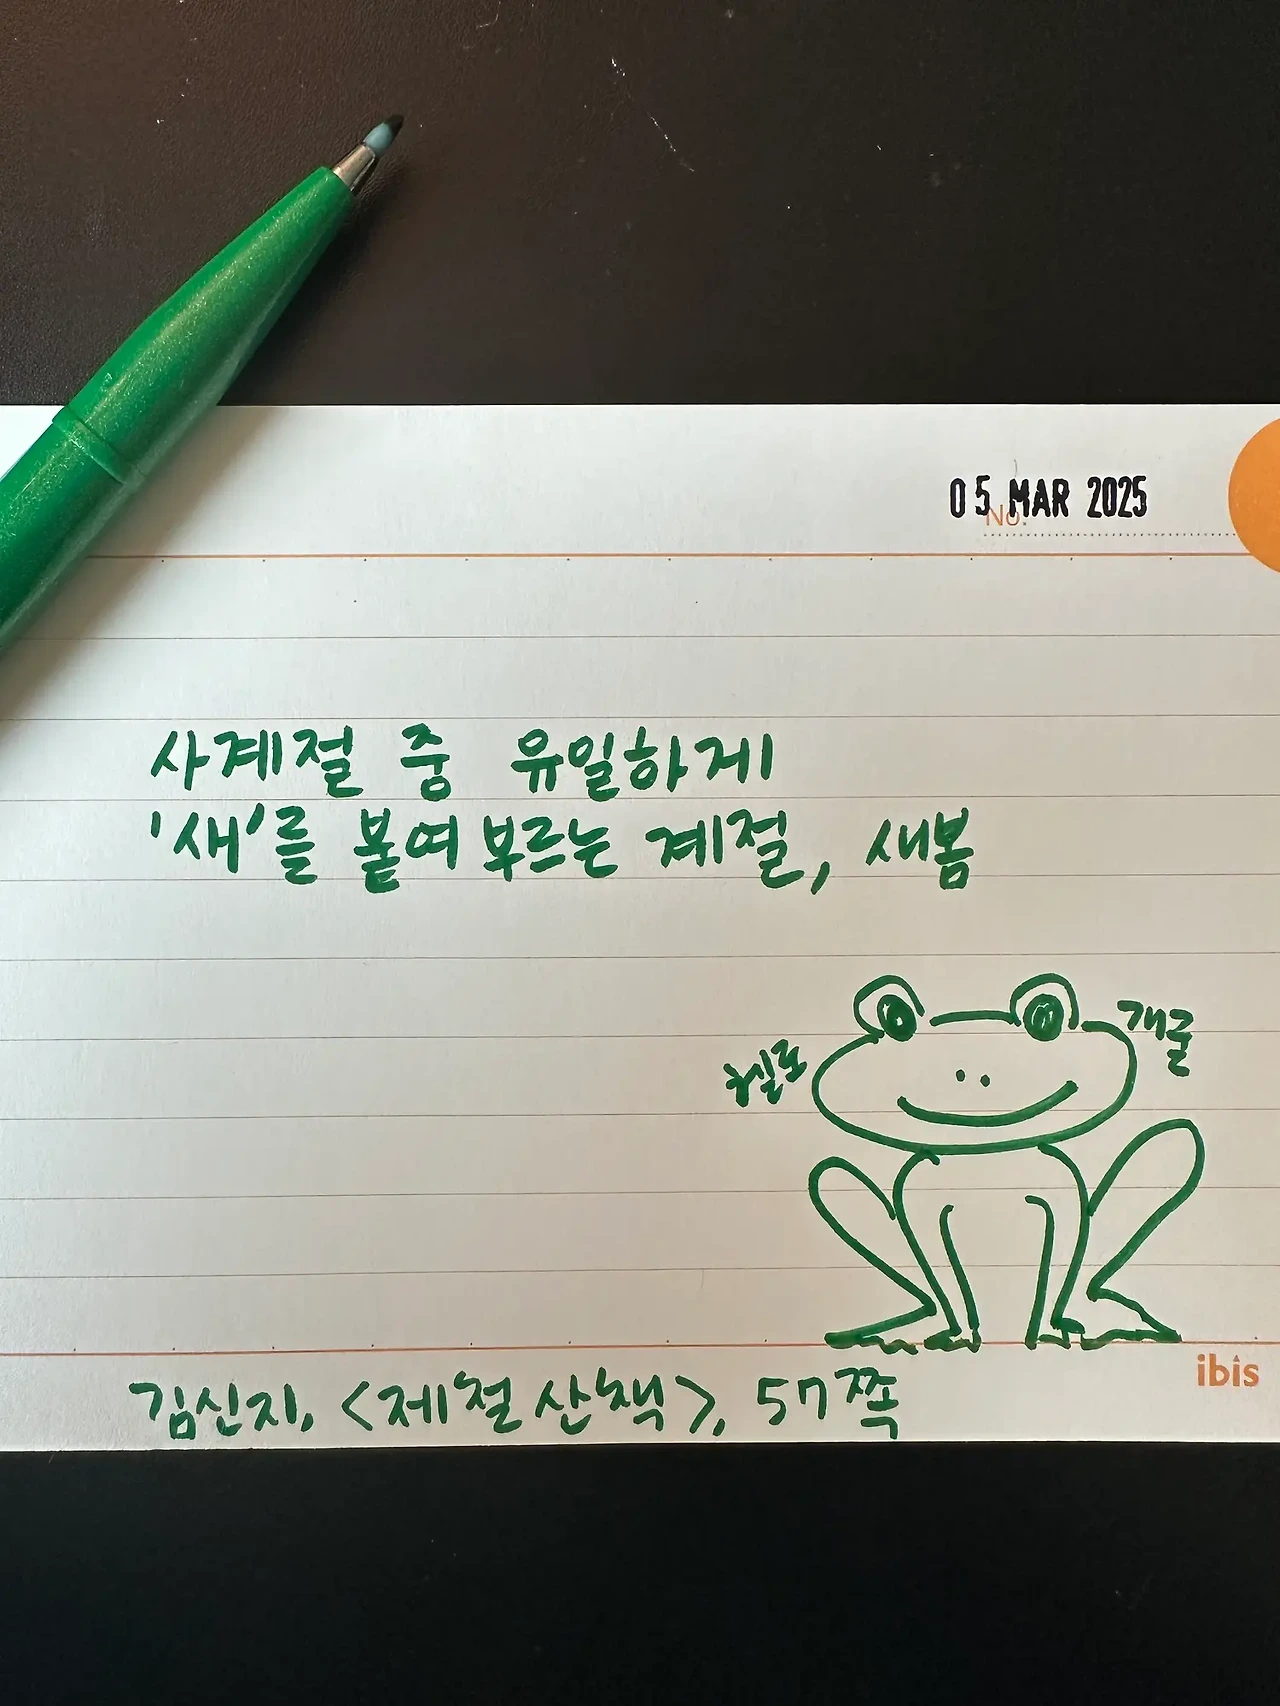 05 MAR 2025
No.
사계절 중 유일하게
'새'를 붙여 부르는 계절, 새봄
헬로
개굴
ibis
김신지, <제철 산책>, 57쪽